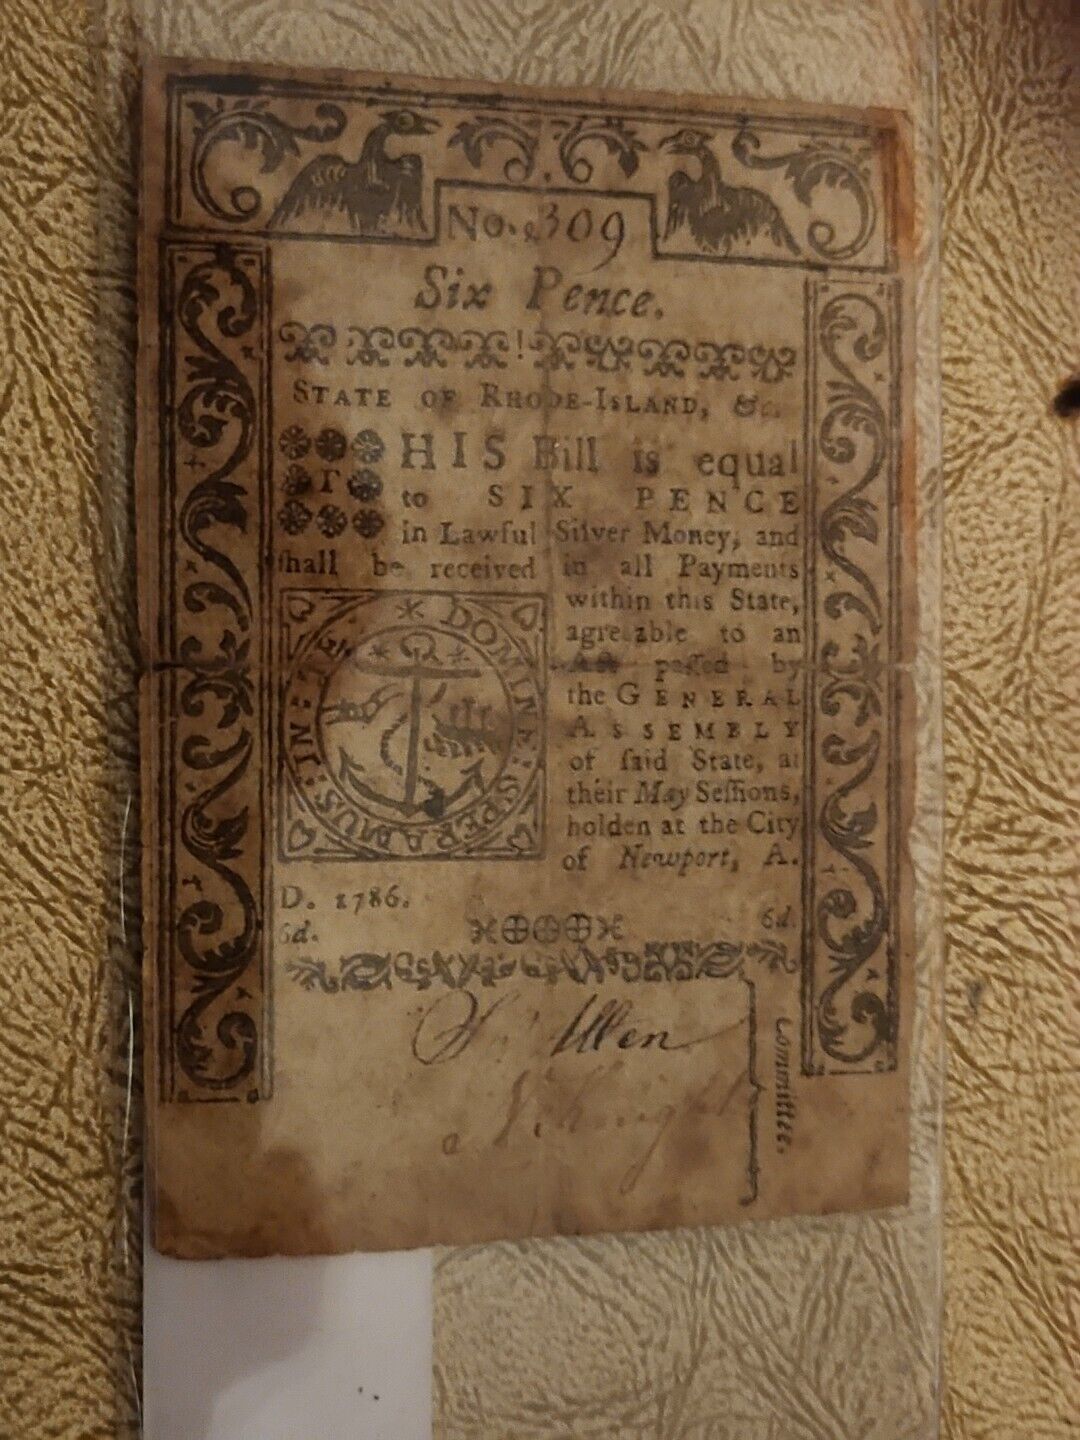 No. 2309
Six Pence.
STATE OF RHODE-ISLAND, &c.
THIS Bill is equal
to SIX PENCE
in Lawful Silver Money, and
shall be received in all Payments
within this State,
agreeable to an
Act passed by
the GENERAL
ASSEMBLY
of said State, at
their May Sessions,
holden at the City
of Newport, A.
D. 1786.
IN TE DOMINE SPERAMUS
6d. 6d.
S. Allen
Knight
Committee.